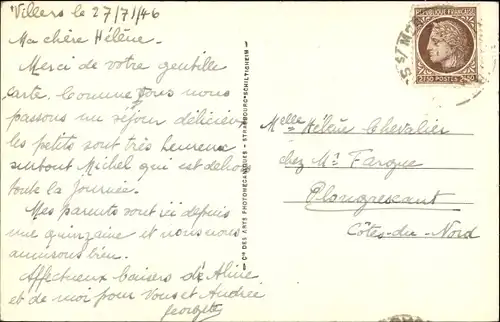 Villers le 27/7/46
Ma chère Hélène.
Merci de votre gentille
carte. Comme vous nous
passons un séjour délicieux
les petits sont très heureux
surtout Michel qui est dehors
toute la journée.
Mes parents sont ici depuis
une quinzaine et nous nous
amusons bien.
Affectueux baisers de Aline
et de moi pour Vous et Andrée
Georgette
Cie DES ARTS PHOTOMECANIQUES - STRASBOURG-SCHILTIGHEIM
REPUBLIQUE FRANÇAISE
2F50 POSTES 2F50
Melle Hélène Chevalier
chez Mr Fargue
Plougrescant
Côtes-du-Nord